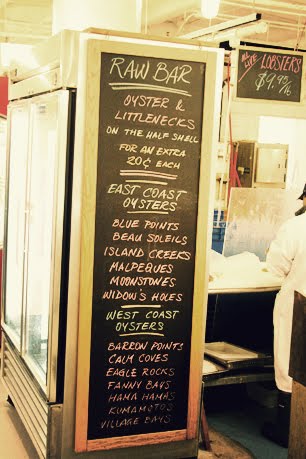 RAW BAR
OYSTER &
LITTLENECKS
ON THE HALF SHELL
FOR AN EXTRA
20¢ EACH
EAST COAST
OYSTERS
BLUE POINTS
BEAU SOLEILS
ISLAND CREEKS
MALPEQUES
MOONSTONES
WIDOW'S HOLES
WEST COAST
OYSTERS
BARRON POINTS
CALM COVES
EAGLE ROCKS
FANNY BAYS
HAMA HAMAS
KUMAMOTOS
VILLAGE BAYS
LIVE LOBSTERS
$9.95/lb